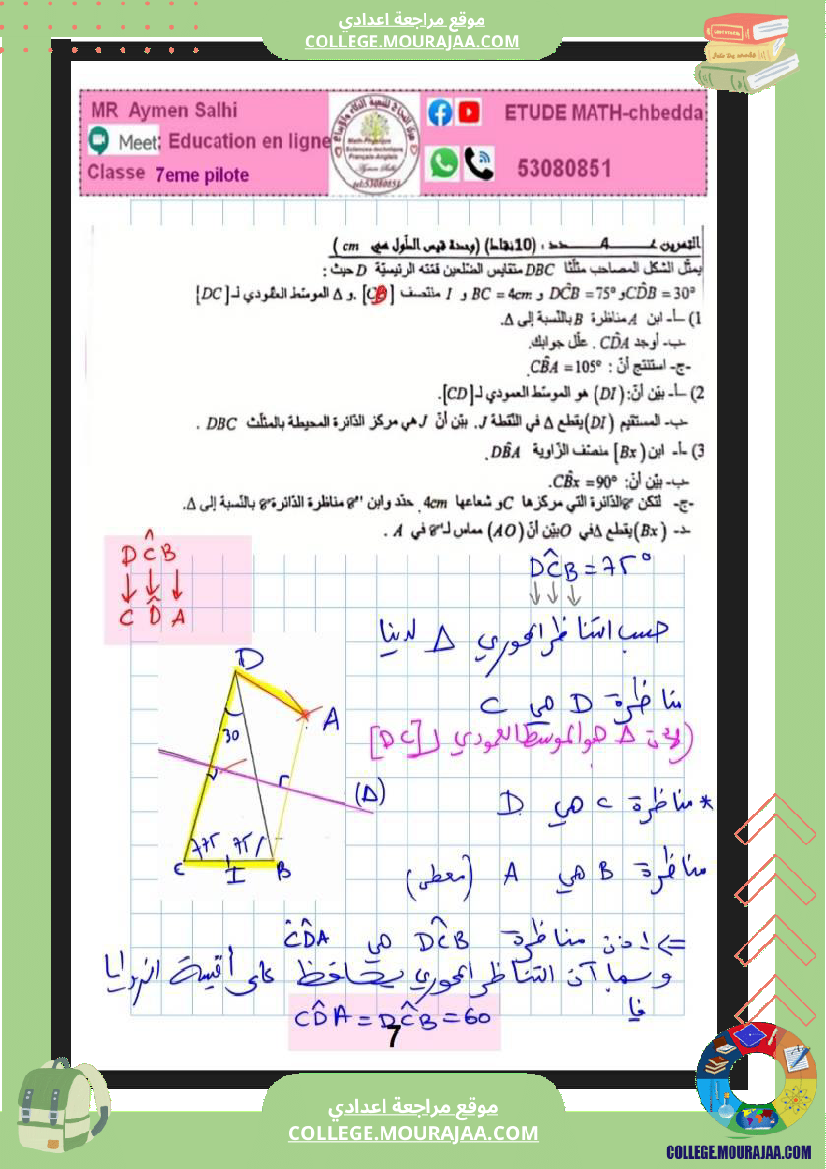 موقع مراجعة اعدادي
COLLEGE.MOURAJAA.COM
MR Aymen Salhi
ETUDE MATH-chbedda
Meet; Education en ligne
53080851
Classe 7eme pilote
Math-Physique
Sciences-technique
Français-Anglais
Aymen Salhi
tel:53080851
التمرين عـــــ4ـــــدد : (10نقاط) (وحدة قيس الطول هي cm )
يمثل الشكل المصاحب مثلثا DBC متقايس الضلعين قمته الرئيسيّة D حيث :
CD̂B = 30° و DĈB = 75° و BC = 4cm و I منتصف [CB] .و Δ الموسّط العمودي لـ [DC]
1) ــأــ ابن A مناظرة B بالنّسبة إلى Δ.
ــبــ أوجد CD̂A . علّل جوابك.
ــجــ استنتج أنّ : CB̂A =105°.
2) ــأــ بيّن أنّ: (DI) هو الموسّط العمودي لـ [CD].
ــبــ المستقيم (DI) يقطع Δ في النّقطة J. بيّن أنّ J هي مركز الدّائرة المحيطة بالمثلّث DBC .
3) ــأــ ابن [Bx) منصف الزّاوية DB̂A.
ــبــ بيّن أنّ: CB̂x =90°.
ــجــ لتكن 𝒞 الدّائرة التي مركزها C و شعاعها 4cm. حدّد وابن 𝒞' مناظرة الدّائرة 𝒞 بالنّسبة إلى Δ.
ــدــ (Bx) يقطع Δ في O بيّن أنّ (AO) مماس لـ 𝒞' في A .
DĈB
↓ ↓ ↓
C D̂ A
DĈB = 75°
↓ ↓ ↓
حسب التناظر المحوري Δ لدينا
مناظرة D هي C
(لأن Δ هو الموسط العمودي لـ [DC]
* مناظرة C هي D
مناظرة B هي A (معطى)
D
A
30
(Δ)
75 75
C I B
=> إذن مناظرة DĈB هي CD̂A
وبما أن التناظر المحوري يحافظ على أقيسة الزوايا
فإ
CD̂A = DĈB = 60
7
موقع مراجعة اعدادي
COLLEGE.MOURAJAA.COM
COLLEGE.MOURAJAA.COM